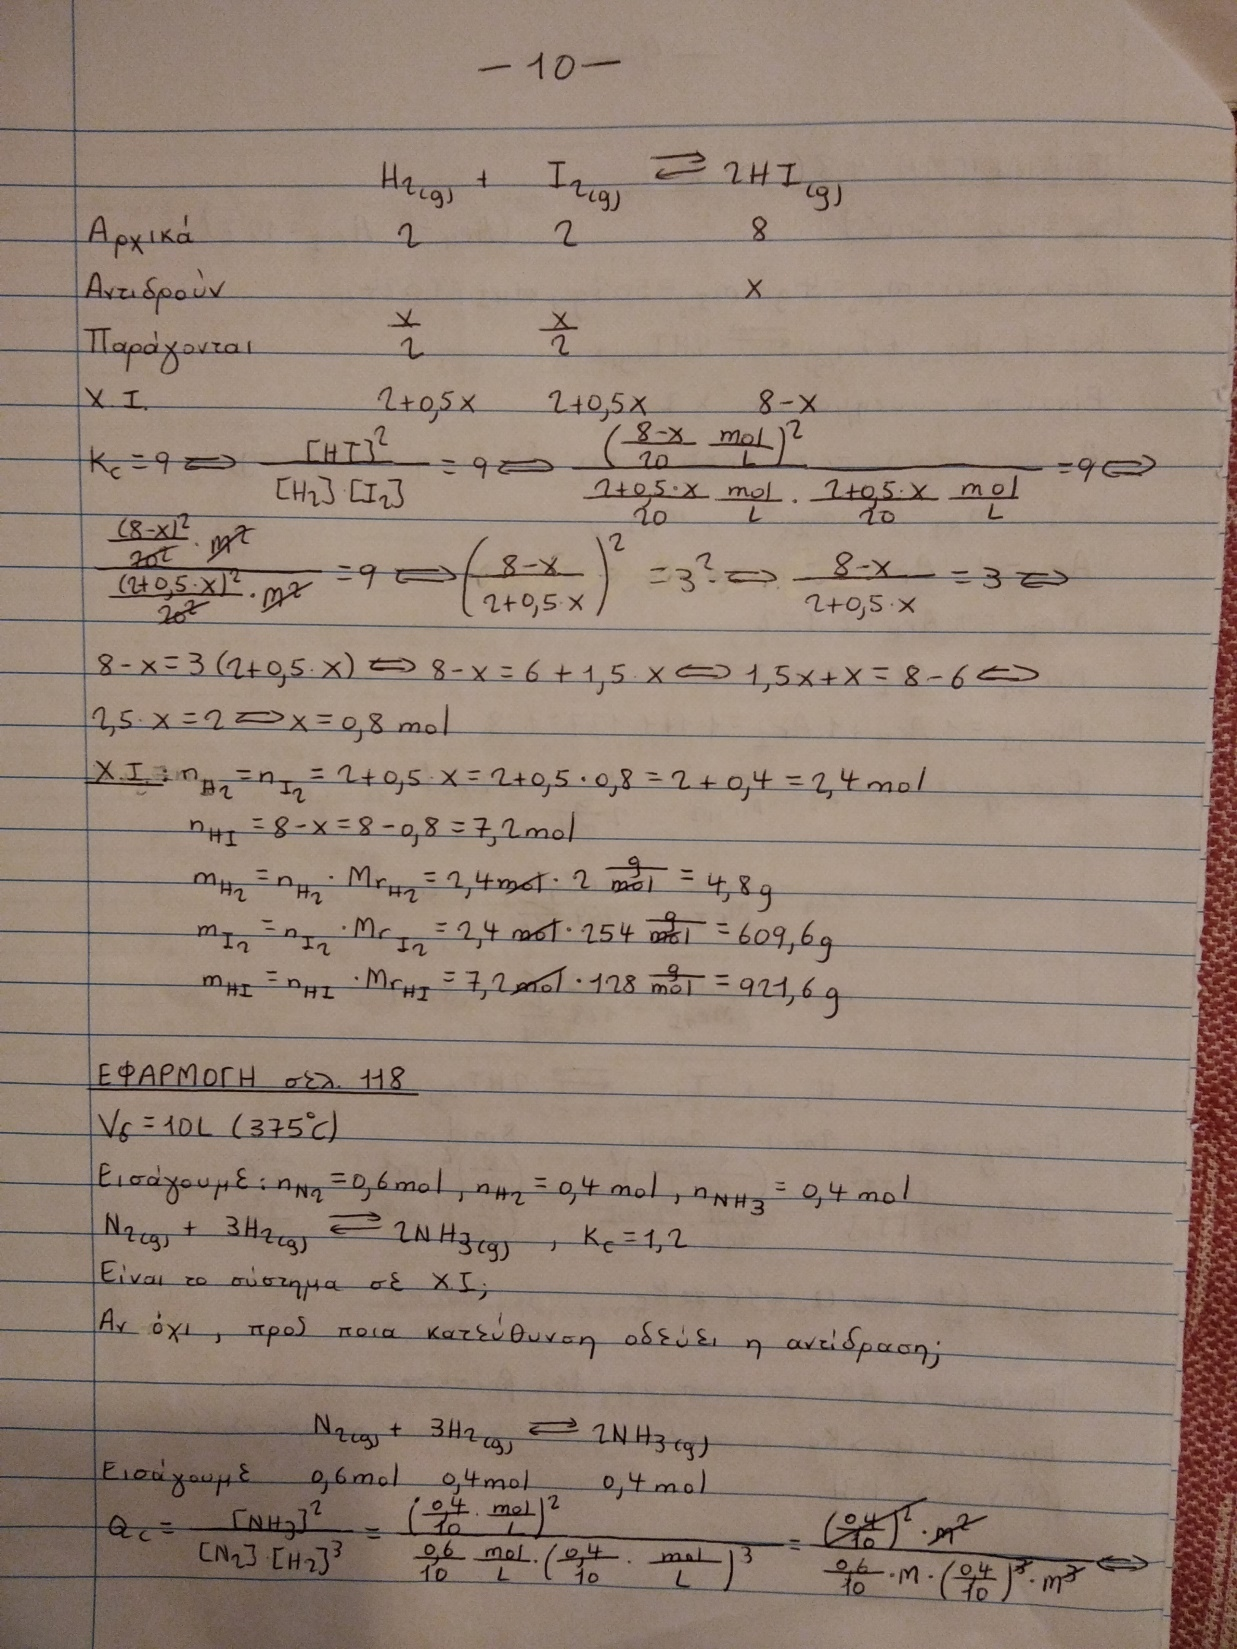 – 10 –
H₂(g) + I₂(g) ⇌ 2HI(g)
Αρχικά 2 2 8
Αντιδρούν x
Παράγονται x/2 x/2
Χ.Ι. 2+0,5x 2+0,5x 8-x
Kc = 9 ⇔ [HI]²/([H₂]·[I₂]) = 9 ⇔ ((8-x)/20 mol/L)² / ((2+0,5·x)/20 mol/L · (2+0,5·x)/20 mol/L) = 9 ⇔
((8-x)²/20² · M²) / ((2+0,5·x)²/20² · M²) = 9 ⇔ ((8-x)/(2+0,5·x))² = 3² ⇔ (8-x)/(2+0,5·x) = 3 ⇔
8-x = 3(2+0,5·x) ⇔ 8-x = 6+1,5·x ⇔ 1,5x+x = 8-6 ⇔
2,5·x = 2 ⇔ x = 0,8 mol
Χ.Ι.: nH₂ = nI₂ = 2+0,5·x = 2+0,5·0,8 = 2+0,4 = 2,4 mol
nHI = 8-x = 8-0,8 = 7,2 mol
mH₂ = nH₂ · MrH₂ = 2,4 mol · 2 g/mol = 4,8 g
mI₂ = nI₂ · MrI₂ = 2,4 mol · 254 g/mol = 609,6 g
mHI = nHI · MrHI = 7,2 mol · 128 g/mol = 921,6 g
ΕΦΑΡΜΟΓΗ σελ. 118
Vδ = 10L (375°C)
Εισάγουμε: nN₂ = 0,6 mol, nH₂ = 0,4 mol, nNH₃ = 0,4 mol
N₂(g) + 3H₂(g) ⇌ 2NH₃(g), Kc = 1,2
Είναι το σύστημα σε Χ.Ι;
Αν όχι, προς ποια κατεύθυνση οδεύει η αντίδραση;
N₂(g) + 3H₂(g) ⇌ 2NH₃(g)
Εισάγουμε 0,6mol 0,4mol 0,4mol
Qc = [NH₃]²/([N₂]·[H₂]³) = (0,4/10 · mol/L)² / (0,6/10 mol/L · (0,4/10 · mol/L)³) = ((0,4/10)² · M²) / (0,6/10 · M · (0,4/10)³ · M³) ⇔